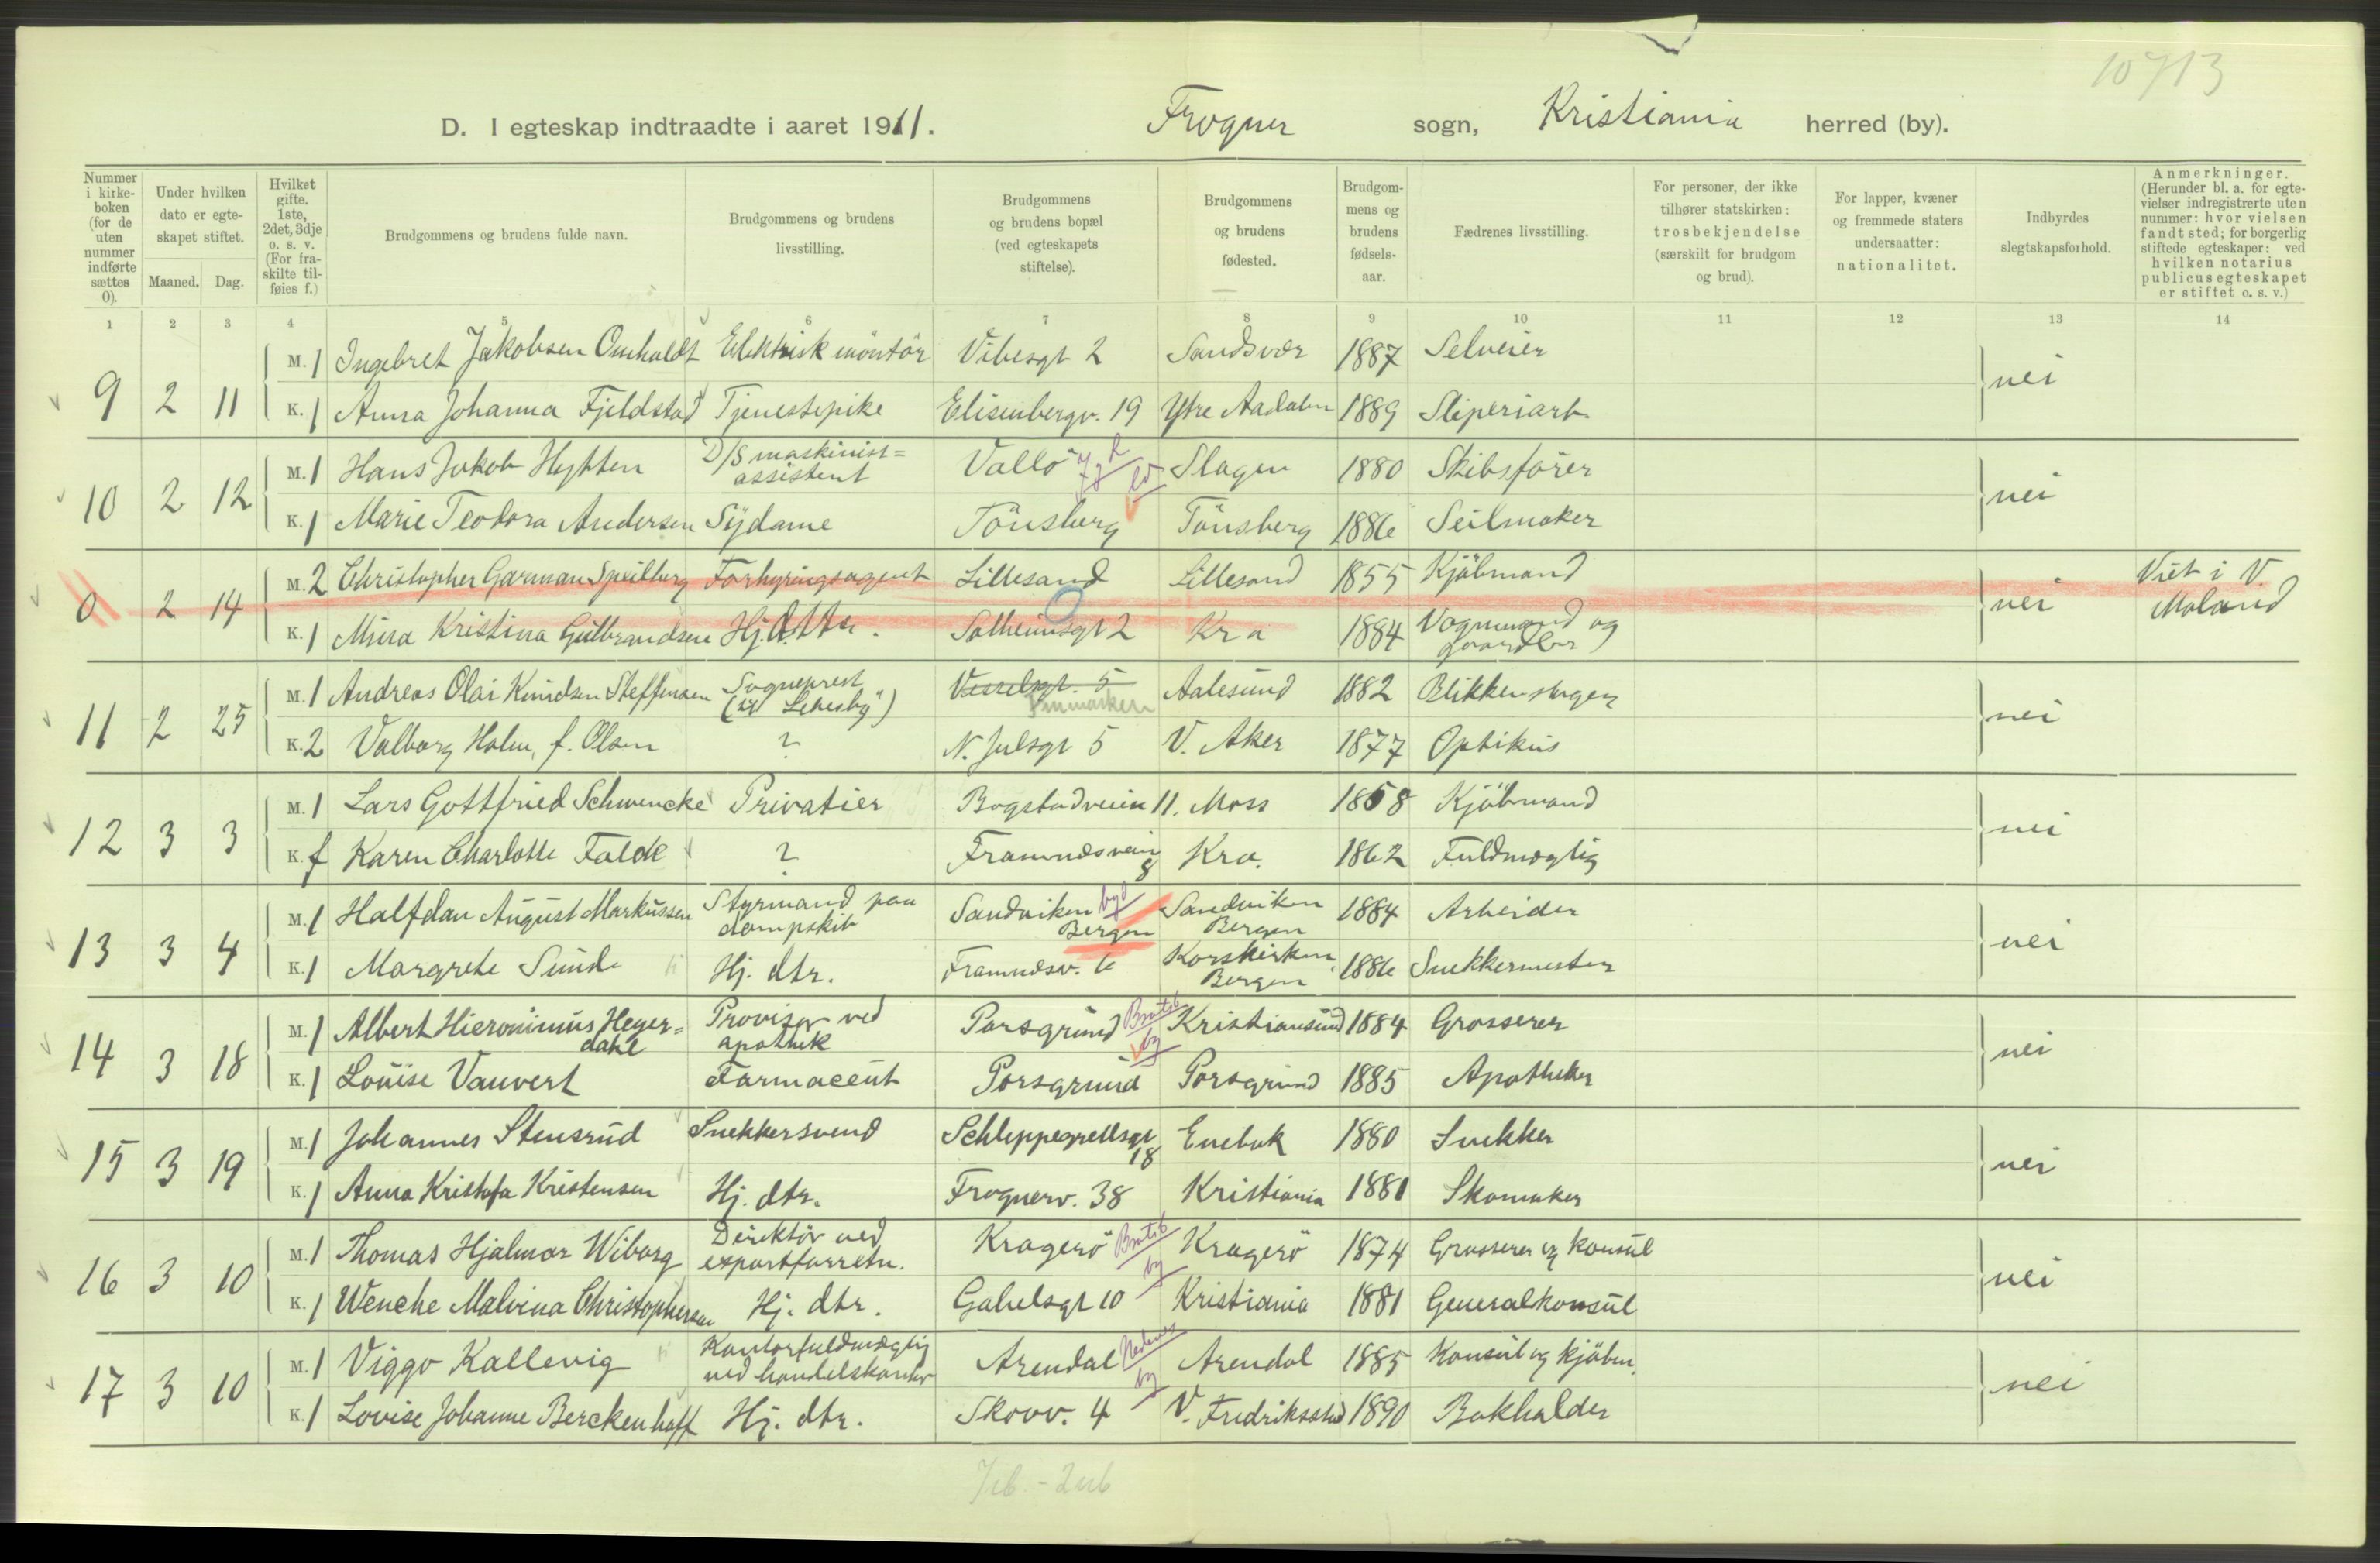 10713
D. I egteskap indtraadte i aaret 1911. Frogner sogn, Kristiania herred (by).
Nummer i kirke-boken (for de uten nummer indførte sættes 0). Under hvilken dato er egte-skapet stiftet. Maaned. Dag. Hvilket gifte. 1ste, 2det, 3dje o. s. v. (For fra-skilte til-føies f.) Brudgommens og brudens fulde navn. Brudgommens og brudens livsstilling. Brudgommens og brudens bopæl (ved egteskapets stiftelse). Brudgommens og brudens fødested. Brudgom-mens og brudens fødsels-aar. Fædrenes livsstilling. For personer, der ikke tilhører statskirken: trosbekjendelse (særskilt for brudgom og brud). For lapper, kvæner og fremmede staters undersaatter: nationalitet. Indbyrdes slegtskapsforhold. Anmerkninger. (Herunder bl. a. for egte-vielser indregistrerte uten nummer: hvor vielsen fandt sted; for borgerlig stiftede egteskaper: ved hvilken notarius publicus egteskapet er stiftet o. s. v.)
1 2 3 4 5 6 7 8 9 10 11 12 13 14
M. 1 Ingebret Jakobsen Omholdt Elektrisk montör Vibesgt 2 Sandsvær 1887 Selveier
9 2 11 nei
K. 1 Anna Johanna Fjeldstad Tjenestepike Elisenbergv. 19 Ytre Aadalen 1889 Sliperiarb.
M. 1 Hans Jakob Hytten D/S maskinist=assistent Vallö Slagen 1880 Skibsförer
10 2 12 nei
K. 1 Marie Teodora Andersen Sydame Tönsberg Tönsberg 1886 Seilmaker
M. 2 Christopher Garman Speilberg Forhyringsagent Lillesand Lillesand 1855 Kjöbmand
0 2 14 nei Viet i V. Moland
K. 1 Mina Kristina Gulbrandsen Hj. dtr. Solheimsgt 2 Kra 1884 Vognmand og gaardbr
M. 1 Andreas Olai Knudsen Steffensen Sogneprest (til Lebesby) Vesselsgt. 5 Finmarken Aalesund 1882 Blikkenslager
11 2 25 nei
K. 2 Valborg Holm, f. Olsen ? N. Julsgt 5 V. Aker 1877 Optikus
M. 1 Lars Gottfried Schwencke Privatier Bogstadveien 11. Moss 1858 Kjöbmand
12 3 3 nei
K. f Karen Charlotte Falck ? Framnæsveien 8 Kra. 1862 Fuldmægtig
M. 1 Halfdan August Markussen Styrmand paa dampskib Sandviken Bergen byd Sandviken Bergen 1884 Arbeider
13 3 4 nei
K. 1 Margrete Sunde Hj. dtr. Framnæsv. 6 Korskirken Bergen 1886 Snekkermester
M. 1 Albert Hieronimus Heyer=dahl Provisor ved apothek Porsgrund Bratsb by Kristiansund 1884 Grosserer
14 3 18 nei
K. 1 Louise Vauvert Farmaceut Porsgrund Porsgrund 1885 Apotheker
M. 1 Johannes Stensrud Snekkersvend Schleppegrellsgt 18 Enebak 1880 Snekker
15 3 19 nei
K. 1 Anna Kristofa Kristensen Hj. dtr. Frognerv. 38 Kristiania 1881 Skomaker
M. 1 Thomas Hjalmar Wiborg Direktör ved exportforretn. Kragerö Bratsb by Kragerö 1874 Grosserer og konsul
16 3 10 nei
K. 1 Wenche Malvina Christophersen Hj. dtr. Gabelsgt 10 Kristiania 1881 Generalkonsul
M. 1 Viggo Kallevig Kontorfuldmægtig ved handelskontor Arendal Nedenes by Arendal 1885 Konsul og kjöbm.
17 3 10 nei
K. 1 Lovise Johanne Berckenhoff Hj. dtr. Skovv. 4 V. Fredriksstad 1890 Bokholder